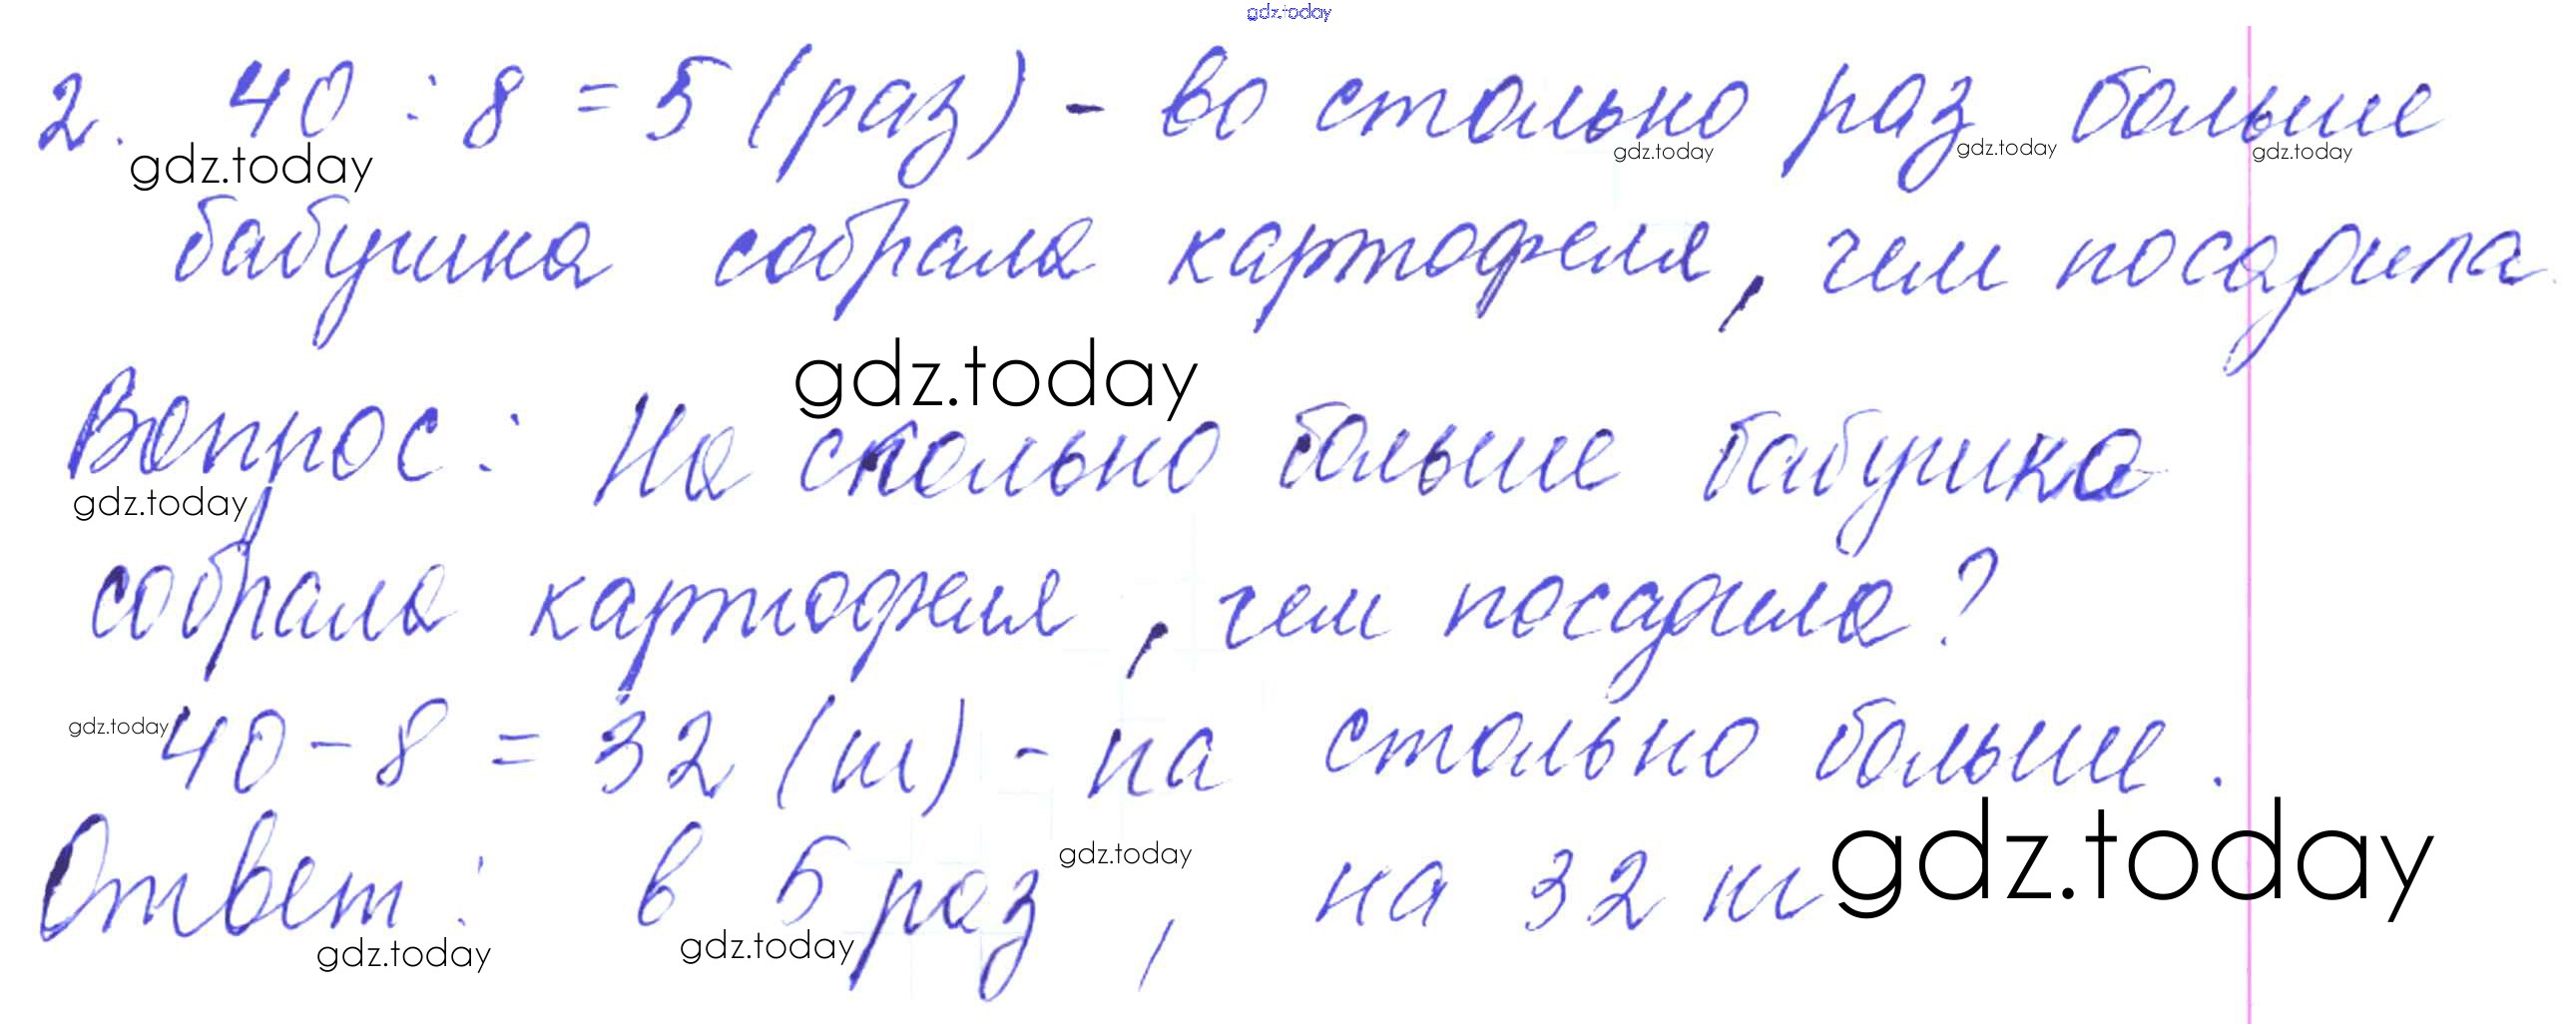 gdz.today
2. 40 : 8 = 5 (раз) - во столько раз больше
gdz.today gdz.today gdz.today gdz.today
бабушка собрала картофеля, чем посадила.
gdz.today
Вопрос: На сколько больше бабушка
gdz.today
собрала картофеля, чем посадила?
gdz.today 40 - 8 = 32 (кг) - на столько больше.
Ответ: в 5 раз, на 32 кг
gdz.today gdz.today
gdz.today gdz.today